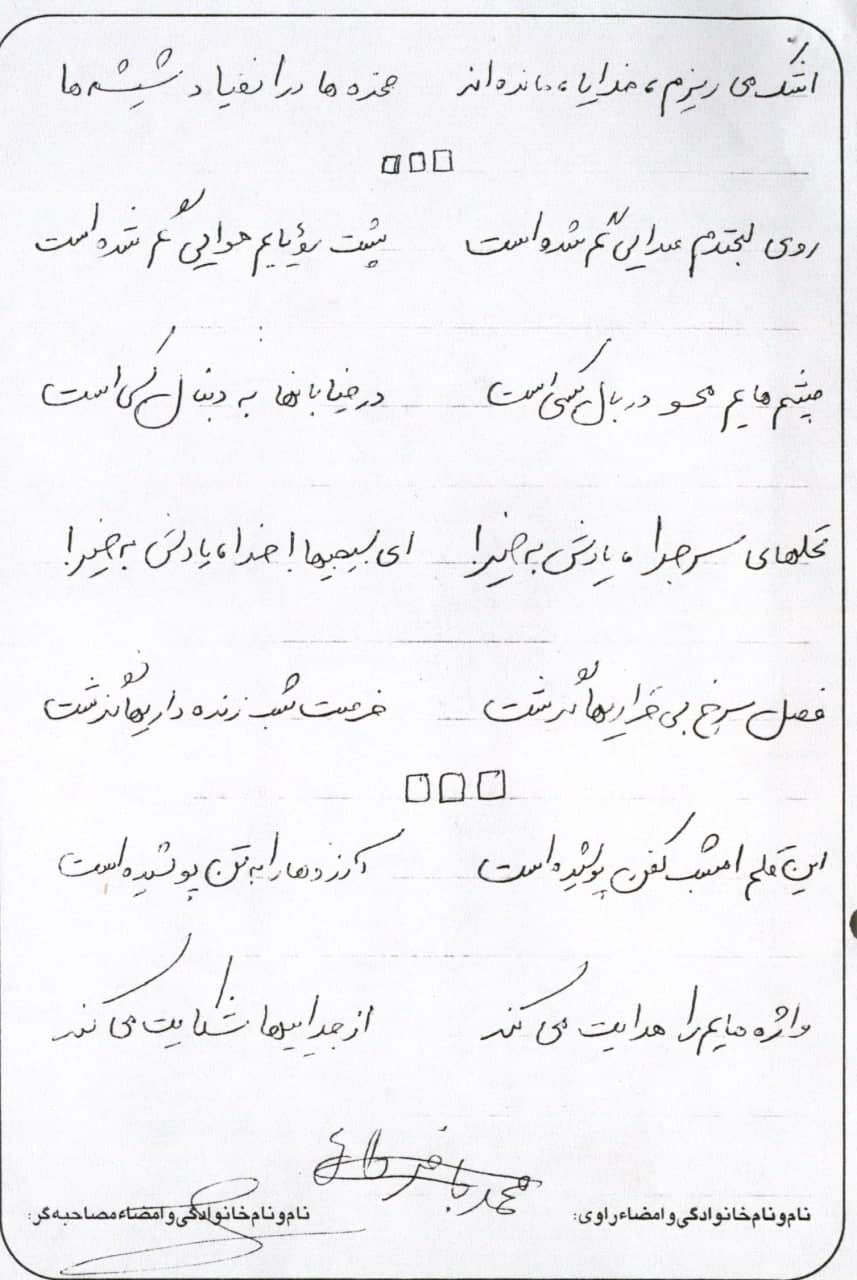 اشک می ریزم، خدایا، مانده اند صخره ها در انقیاد شیشه ها
روی لبخندم صدایی گم شده است پشت رؤیایم هوایی گم شده است
چشم هایم محو در بال کسی است در خیابانها به دنبال کسی است
نخلهای سرجدا، یادش به خیر! ای بسیجیها! خدا، یادش به خیر!
فصل سرخ بی قراریها گذشت فرصت شب زنده داریها گذشت
این قلم امشب کفن پوشیده است آرزوها را به تن پوشیده است
واژه هایم را هدایت می کند از جداییها شکایت می کند
محمد باقر
نام و نام خانوادگی و امضاء راوی: نام و نام خانوادگی و امضاء مصاحبه گر: